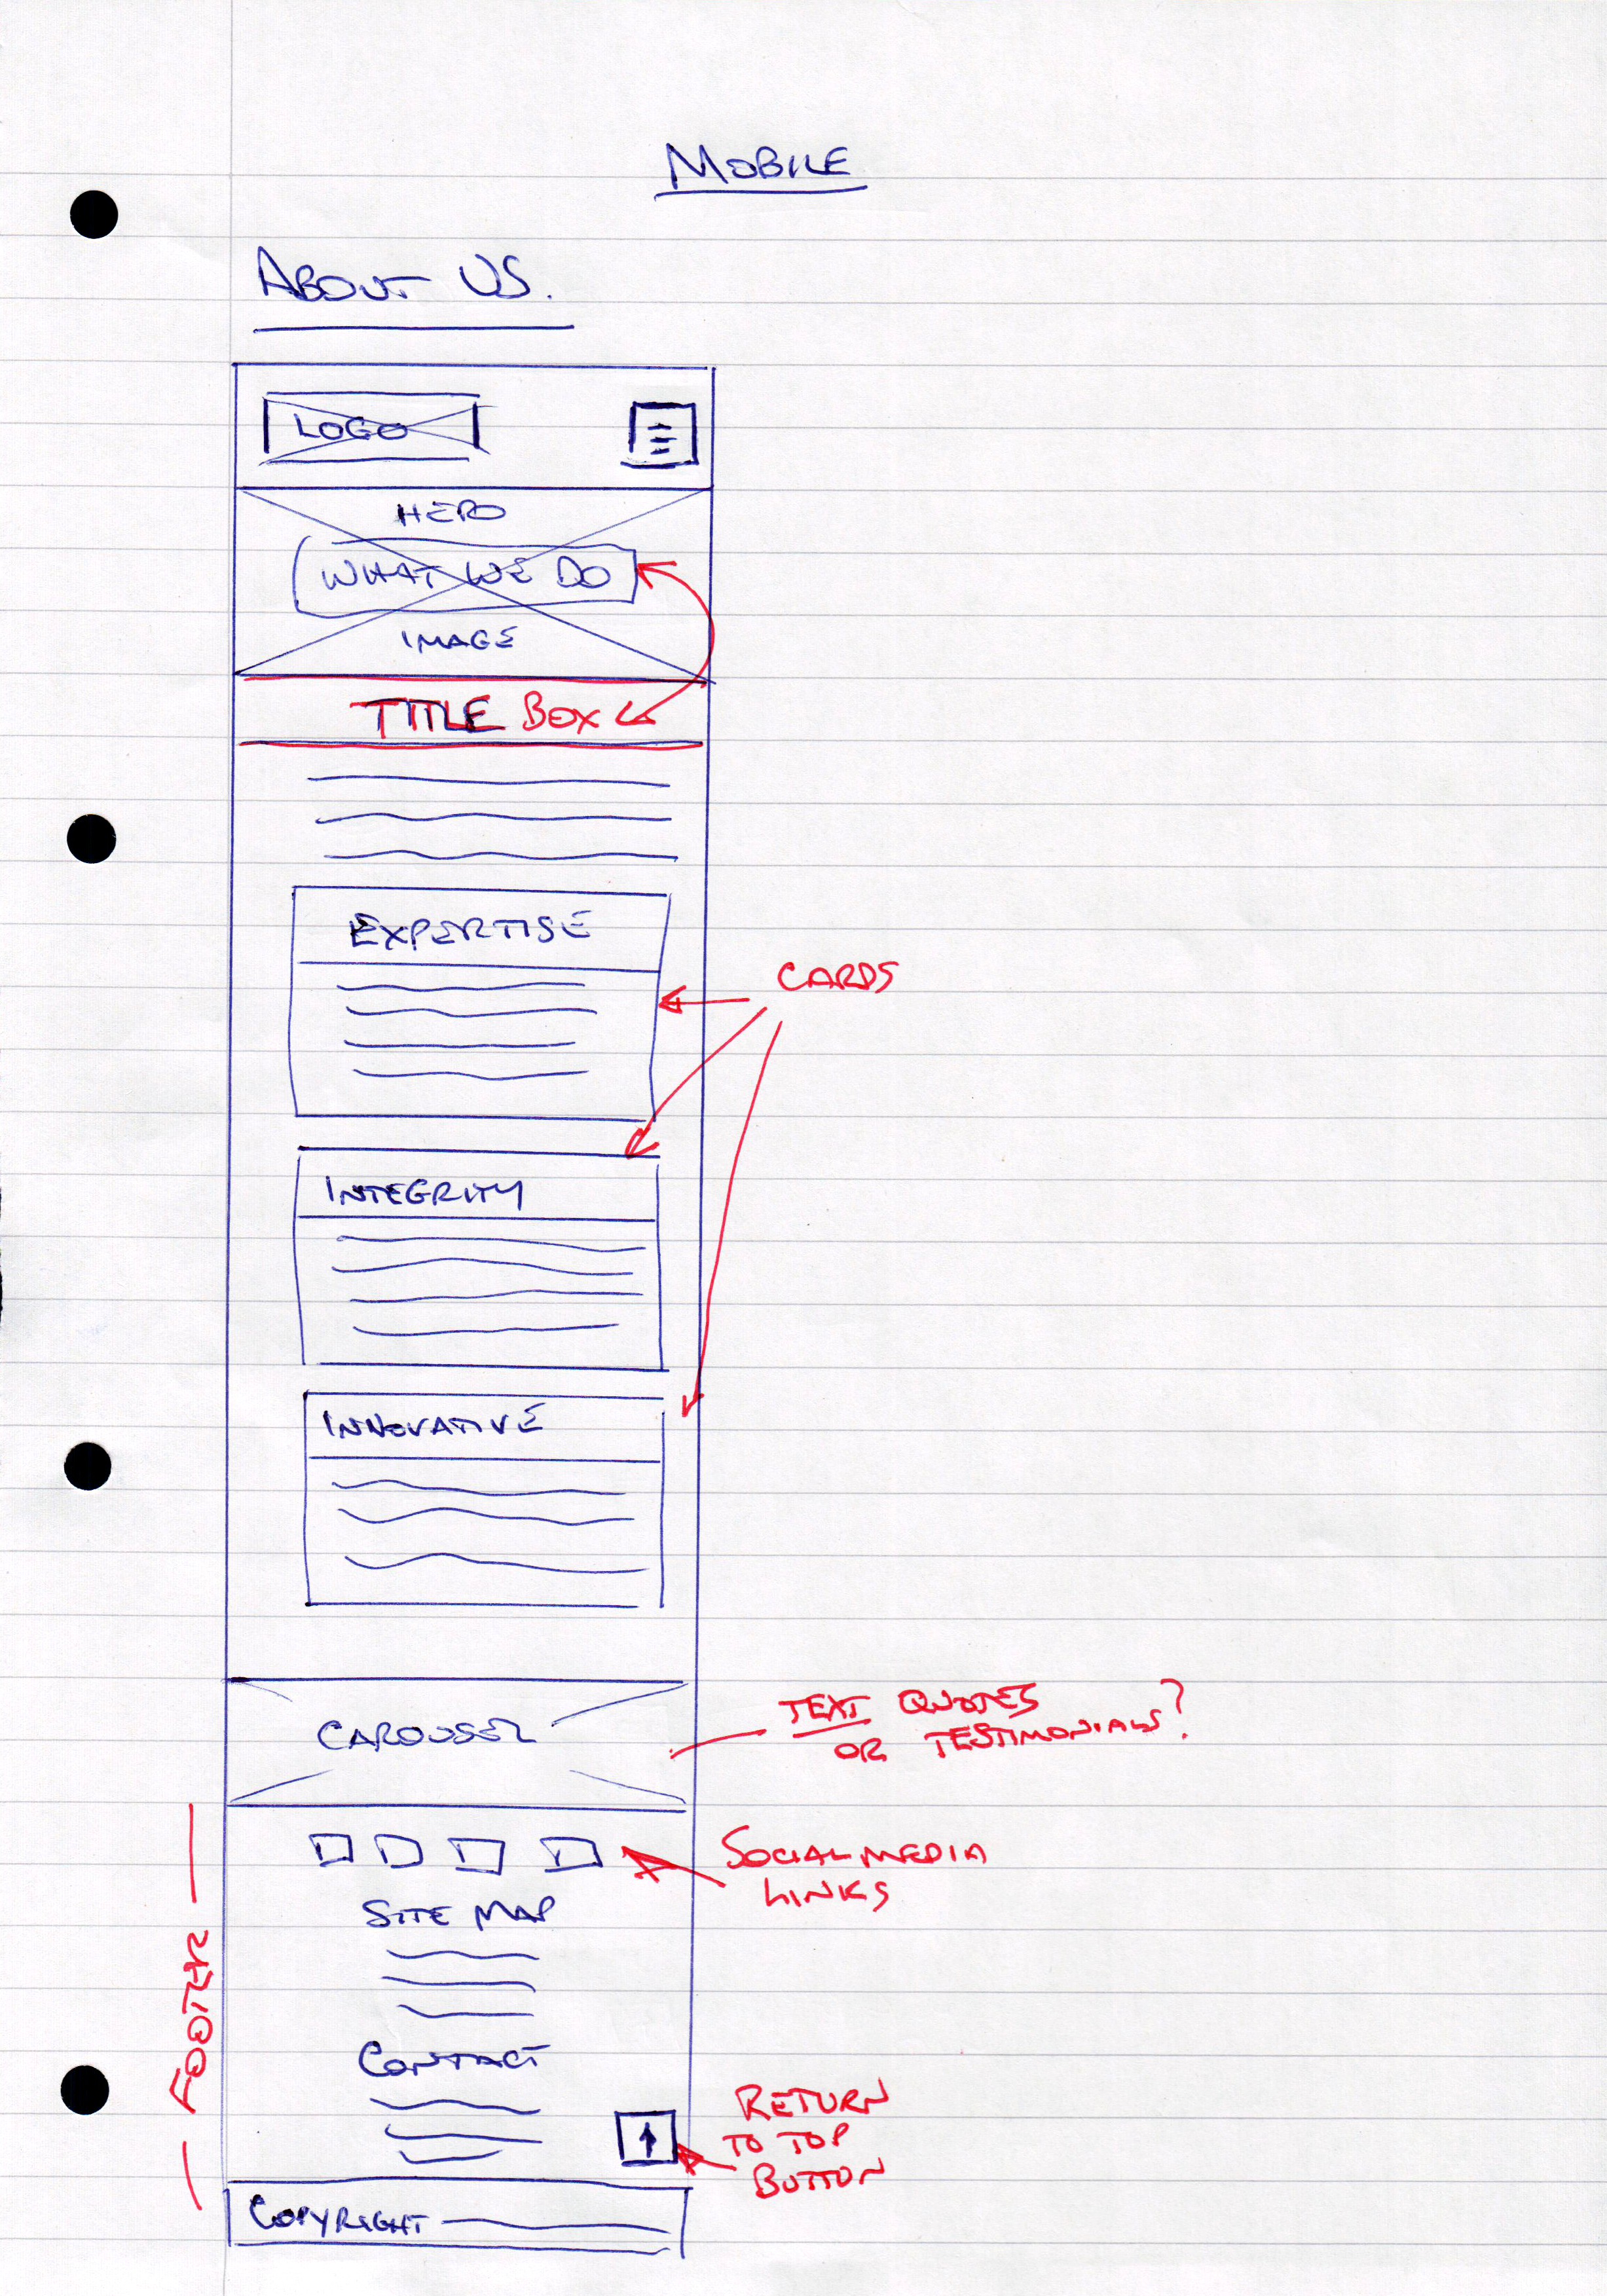 MOBILE
ABOUT US.
LOGO
HERO
WHAT WE DO
IMAGE
TITLE BOX
EXPERTISE
CARDS
INTEGRITY
INNOVATIVE
CAROUSEL
TEXT QUOTES
OR TESTIMONIALS?
SOCIAL MEDIA
LINKS
SITE MAP
FOOTER
CONTACT
RETURN
TO TOP
BUTTON
COPYRIGHT